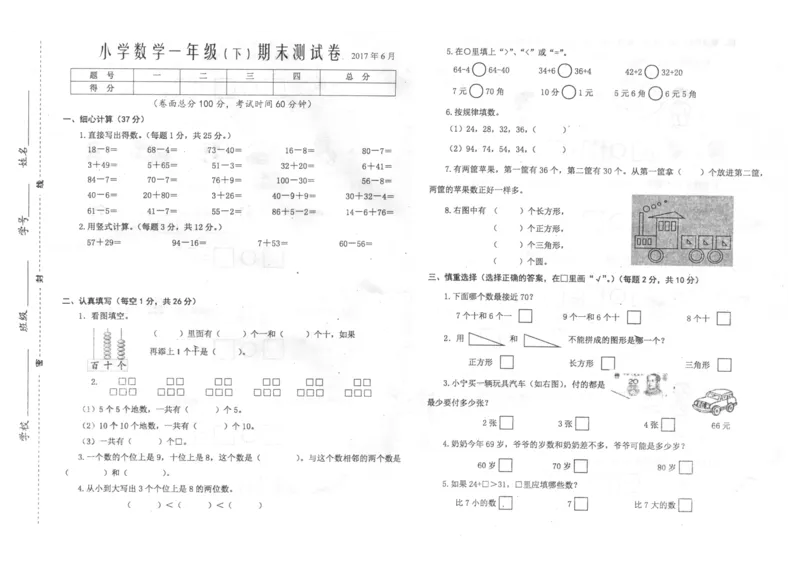 小学数学一年级(下)期末测试卷 2017年6月
题 号 一 二 三 四 总 分
得 分
(卷面总分100分，考试时间60分钟)
一、细心计算(37分)
1.直接写出得数。(每题1分，共25分。)
18-8= 68-4= 73-40= 16-8= 80-7=
3+49= 5+65= 51-3= 32+20= 6+41=
84-7= 70-7= 76+9= 100-30= 56-8=
40-6= 20+80= 3+26= 40-9+9= 30+32-4=
61-5= 41-7= 55-2= 86+5-2= 14-6+76=
2.用竖式计算。(每题3分，共12分。)
57+29= 94-16= 7+53= 60-56=
二、认真填写(每空1分，共26分)
1. 看图填空。
( )里面有( )个一和( )个十，如果
再添上1个十是( )。
百 十 个
2.
(1)5个5个地数，一共有( )个5。
(2)10个10个地数，一共有( )个10。
(3)一共有( )个□。
3.一个数的个位上是9，十位上是8，这个数是( )，与这个数相邻的两个数是
( )和( )。
4.从小到大写出3个个位上是8的两位数。
( )<( )<( )
学校 班级 学号 姓名
密 封 线
5.在○里填上“>”、“<”或“=”。
64-4○64-40 34+6○36+4 42+2○32+20
7元○70角 10分○1元 5元6角○6元5角
6.按规律填数。
(1)24，28，32，36，( )
(2)94，74，54，34，( )
7.有两筐苹果，第一筐有36个，第二筐有30个。从第一筐拿( )个放进第二筐，
两筐的苹果数正好一样多。
8.右图中有 ( )个长方形，
( )个正方形，
( )个三角形，
( )个圆。
三、慎重选择(选择正确的答案，在□里画“√”。)(每题2分，共10分)
1.下面哪个数最接近70?
7个十和6个一□ 9个一和6个十□ 8个十□
2. 用 和 不能拼成的图形是哪一个?
正方形□ 长方形□ 三角形□
3.小宁买一辆玩具汽车(如右图)，付的都是
20
最少要付多少张?
2张□ 3张□ 4张□ 66元
4.奶奶今年69岁，爷爷的岁数和奶奶差不多，爷爷可能是多少岁?
60岁□ 70岁□ 80岁□
5.如果24+□>31，□里应填哪些数?
比7小的数□ 7□ 比7大的数□